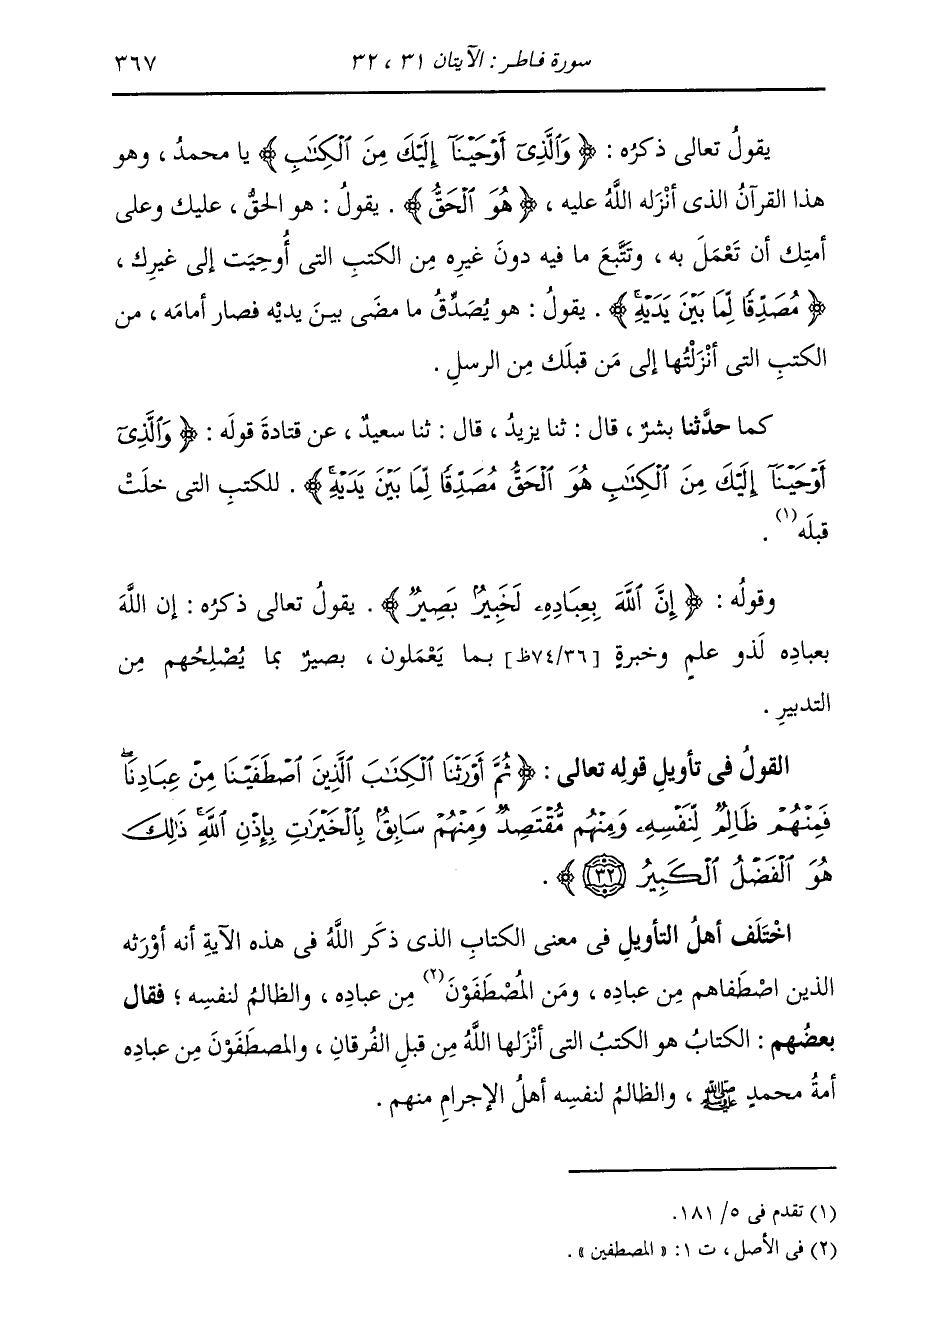 سورة فاطر : الآيتان ٣١ ، ٣٢ ٣٦٧
يقولُ تعالى ذكرُه : ﴿ وَٱلَّذِىٓ أَوۡحَيۡنَآ إِلَيۡكَ مِنَ ٱلۡكِتَٰبِ ﴾ يا محمدُ ، وهو
هذا القرآنُ الذى أنْزَله اللَّهُ عليه ، ﴿ هُوَ ٱلۡحَقُّ ﴾ . يقولُ : هو الحقُّ ، عليك وعلى
أمتِك أن تَعْمَلَ به ، وتَتَّبعَ ما فيه دونَ غيرِه مِن الكتبِ التى أُوحِيَت إلى غيرِك ،
﴿ مُصَدِّقٗا لِّمَا بَيۡنَ يَدَيۡهِۚ ﴾ . يقولُ : هو يُصَدِّقُ ما مضَى بينَ يديْه فصار أمامَه ، من
الكتبِ التى أنْزَلْتُها إلى مَن قبلَك مِن الرسلِ .
كما حدَّثنا بشرٌ ، قال : ثنا يزيدُ ، قال : ثنا سعيدٌ ، عن قتادةَ قولَه : ﴿ وَٱلَّذِىٓ
أَوۡحَيۡنَآ إِلَيۡكَ مِنَ ٱلۡكِتَٰبِ هُوَ ٱلۡحَقُّ مُصَدِّقٗا لِّمَا بَيۡنَ يَدَيۡهِۚ ﴾ . للكتبِ التى خلَتْ
قبلَه (١) .
وقولُه : ﴿ إِنَّ ٱللَّهَ بِعِبَادِهِۦ لَخَبِيرُۢ بَصِيرٞ ﴾ . يقولُ تعالى ذكرُه : إن اللَّهَ
بعبادِه لَذو علمٍ وخبرةٍ [٧٤/٣٦ظ] بما يَعْمَلون ، بصيرٌ بما يُصْلِحُهم مِن
التدبيرِ .
القولُ فى تأويلِ قولِه تعالى : ﴿ ثُمَّ أَوۡرَثۡنَا ٱلۡكِتَٰبَ ٱلَّذِينَ ٱصۡطَفَيۡنَا مِنۡ عِبَادِنَاۖ
فَمِنۡهُمۡ ظَالِمٞ لِّنَفۡسِهِۦ وَمِنۡهُم مُّقۡتَصِدٞ وَمِنۡهُمۡ سَابِقُۢ بِٱلۡخَيۡرَٰتِ بِإِذۡنِ ٱللَّهِۚ ذَٰلِكَ
هُوَ ٱلۡفَضۡلُ ٱلۡكَبِيرُ ٣٢ ﴾ .
اخْتَلَف أهلُ التأويلِ فى معنى الكتابِ الذى ذكَر اللَّهُ فى هذه الآيةِ أنه أوْرَثه
الذين اصْطَفاهم مِن عبادِه ، ومَن المُصْطَفَوْنَ (٢) مِن عبادِه ، والظالمُ لنفسِه ؛ فقال
بعضُهم : الكتابُ هو الكتبُ التى أنْزَلها اللَّهُ مِن قبلِ الفُرقانِ ، والمصطَفَوْنَ مِن عبادِه
أمةُ محمدٍ ﷺ ، والظالمُ لنفسِه أهلُ الإجرامِ منهم .
(١) تقدم فى ٥/ ١٨١.
(٢) فى الأصل ، ت ١: « المصطفين » .